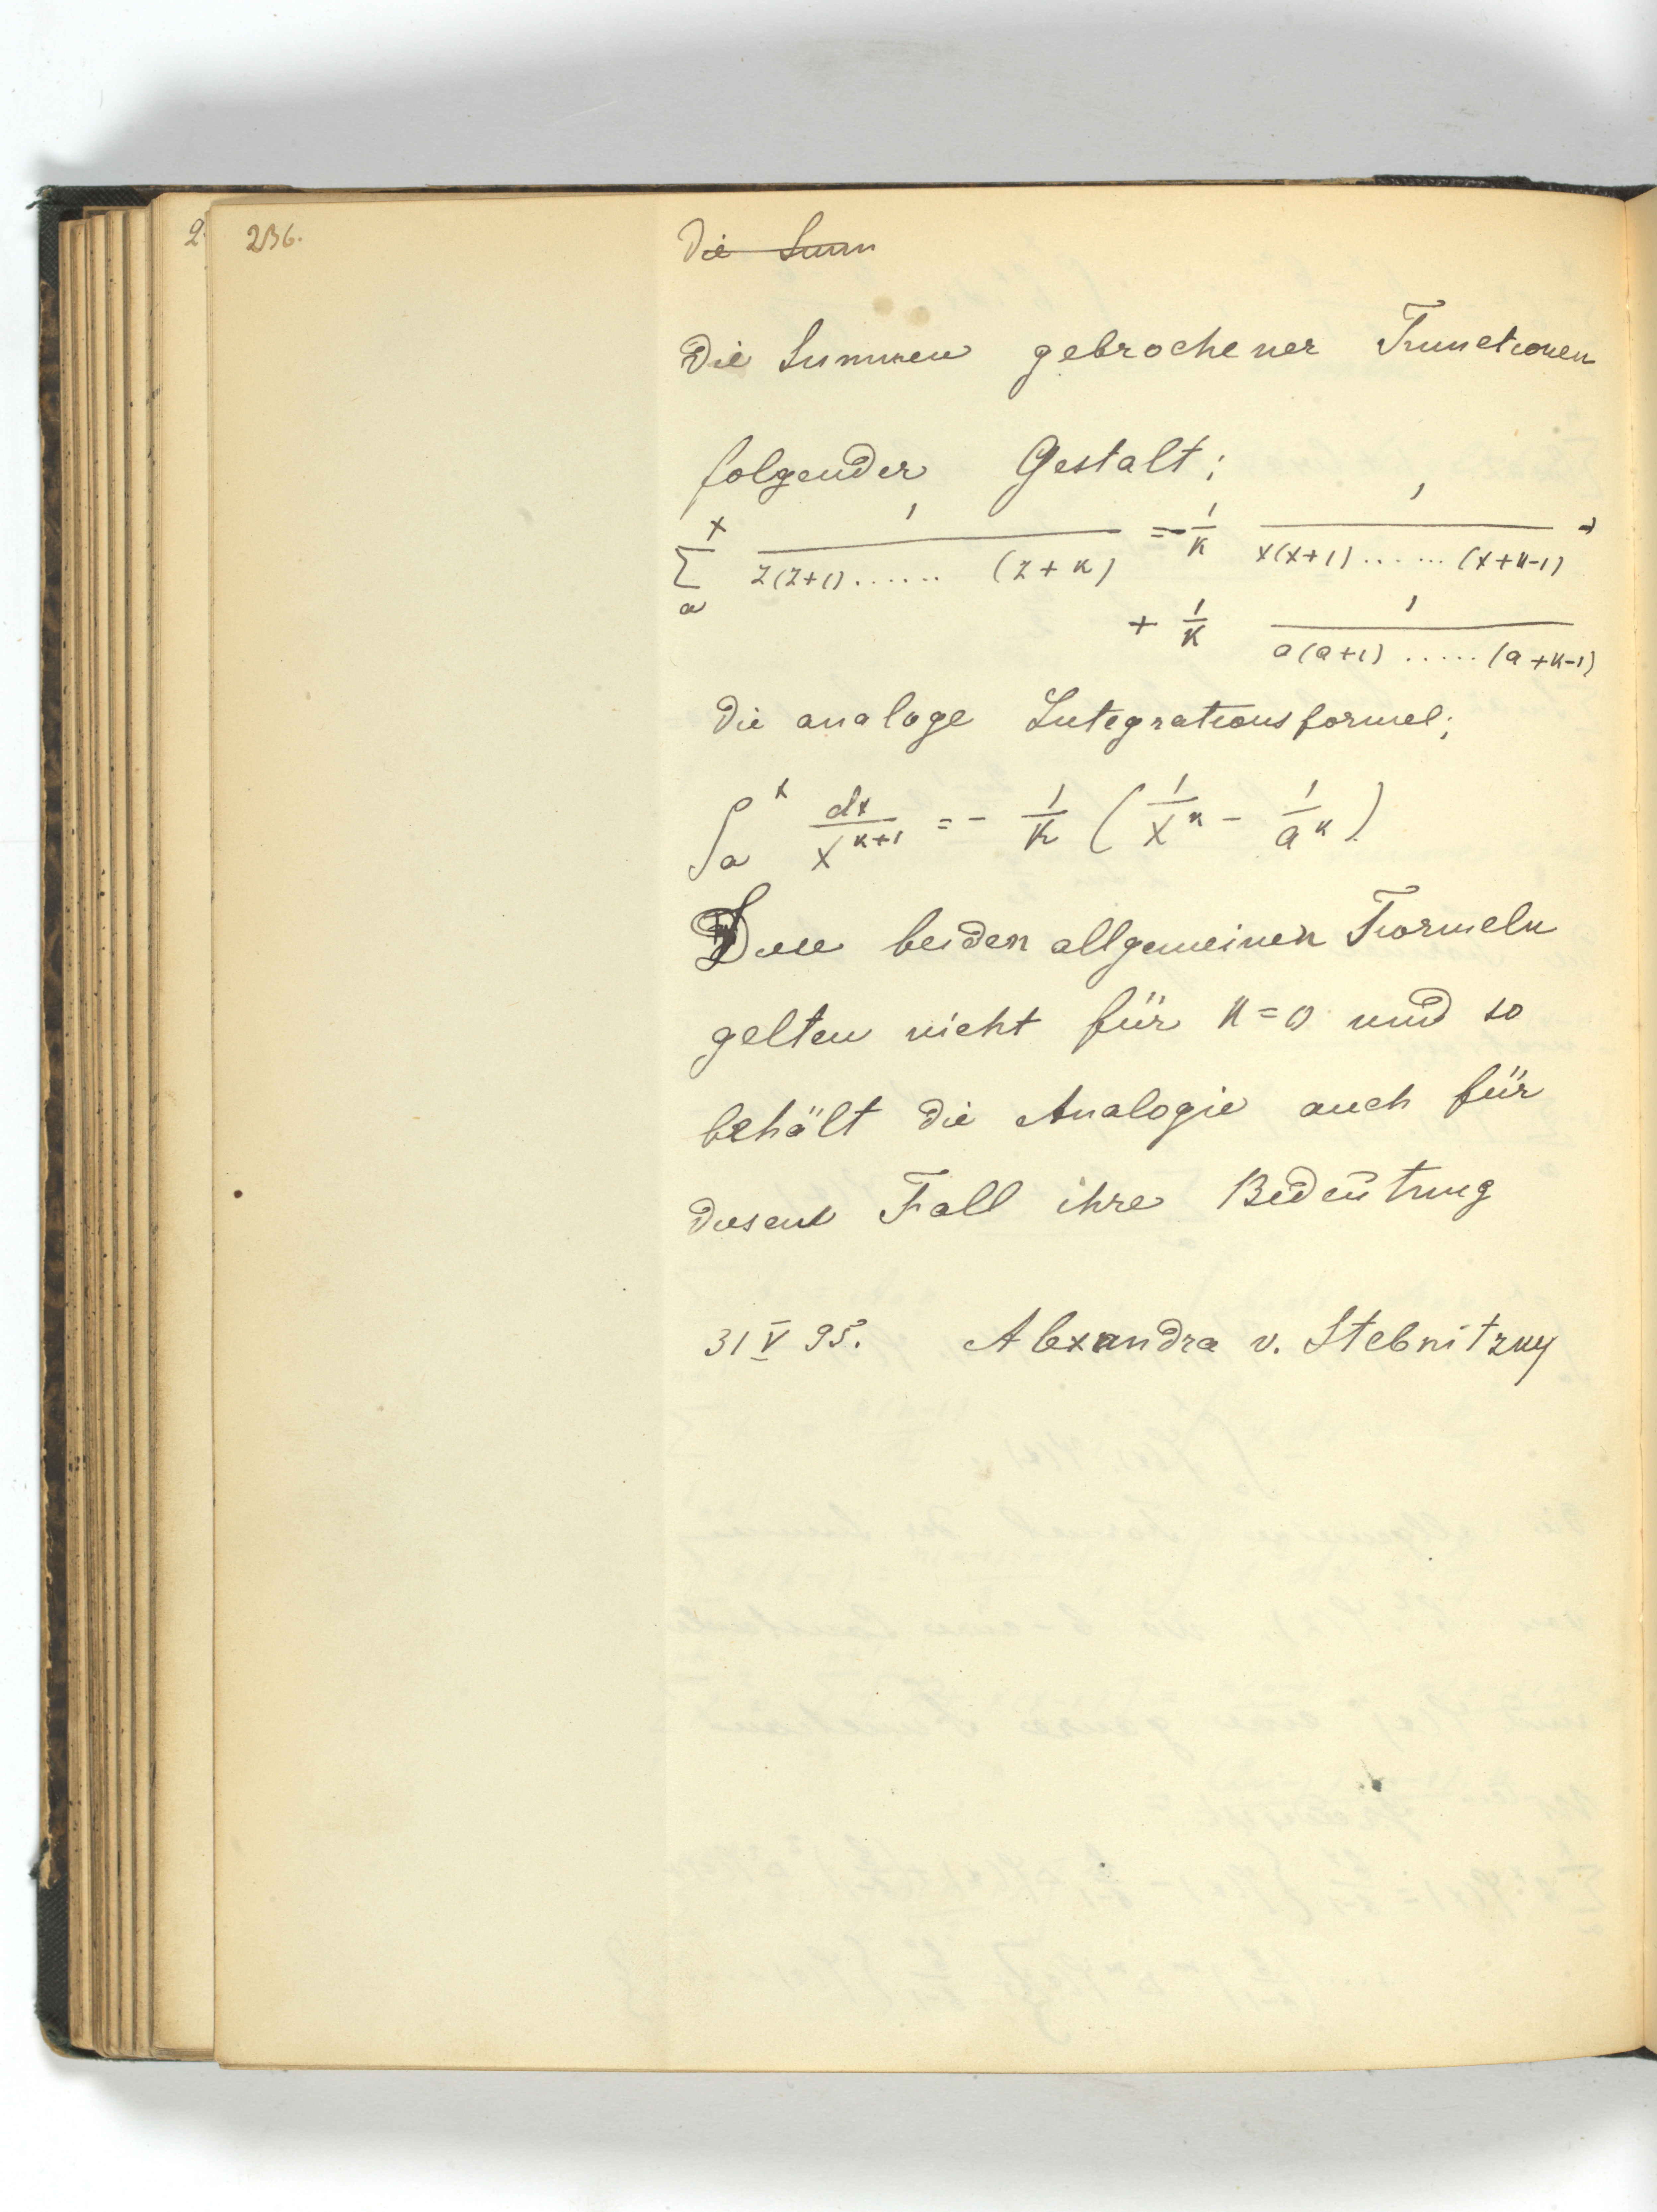 2
236.
Die Summ
Die Summen gebrochener Functionen
folgender Gestalt;
∑_a^x 1/(z(z+1)......(z+k)) = -1/k 1/(x(x+1)......(x+k-1)) +
+ 1/k 1/(a(a+1).....(a+k-1))
Die analoge Integrationsformel;
∫_a^x dx/x^(k+1) = - 1/k (1/x^k - 1/a^k)
Diese beiden allgemeinen Formeln
gelten nicht für k=0 und so
behält die Analogie auch für
diesen Fall ihre Bedeutung
31 V 95. Alexandra v. Stebnitzky